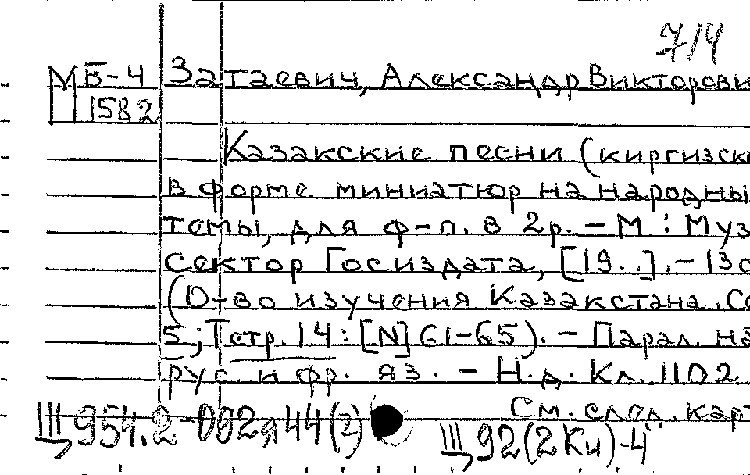 7/4
М Б-4 Затаевич, Александр Викторови
1582
Казакские песни (киргизск
в форме миниатюр на народны
темы, для ф-п. в 2р. - М : Муз
сектор Госиздата, [19..]. - 13с
(О-во изучения Казакстана. Се
5; Тетр. 14: [N] 61-65). - Парал. на
рус. и фр. яз. - Н.д. Кл. 1102
См. след. кар
Ш 954.2-002я44(2)
Ш 92(2Ки)-4